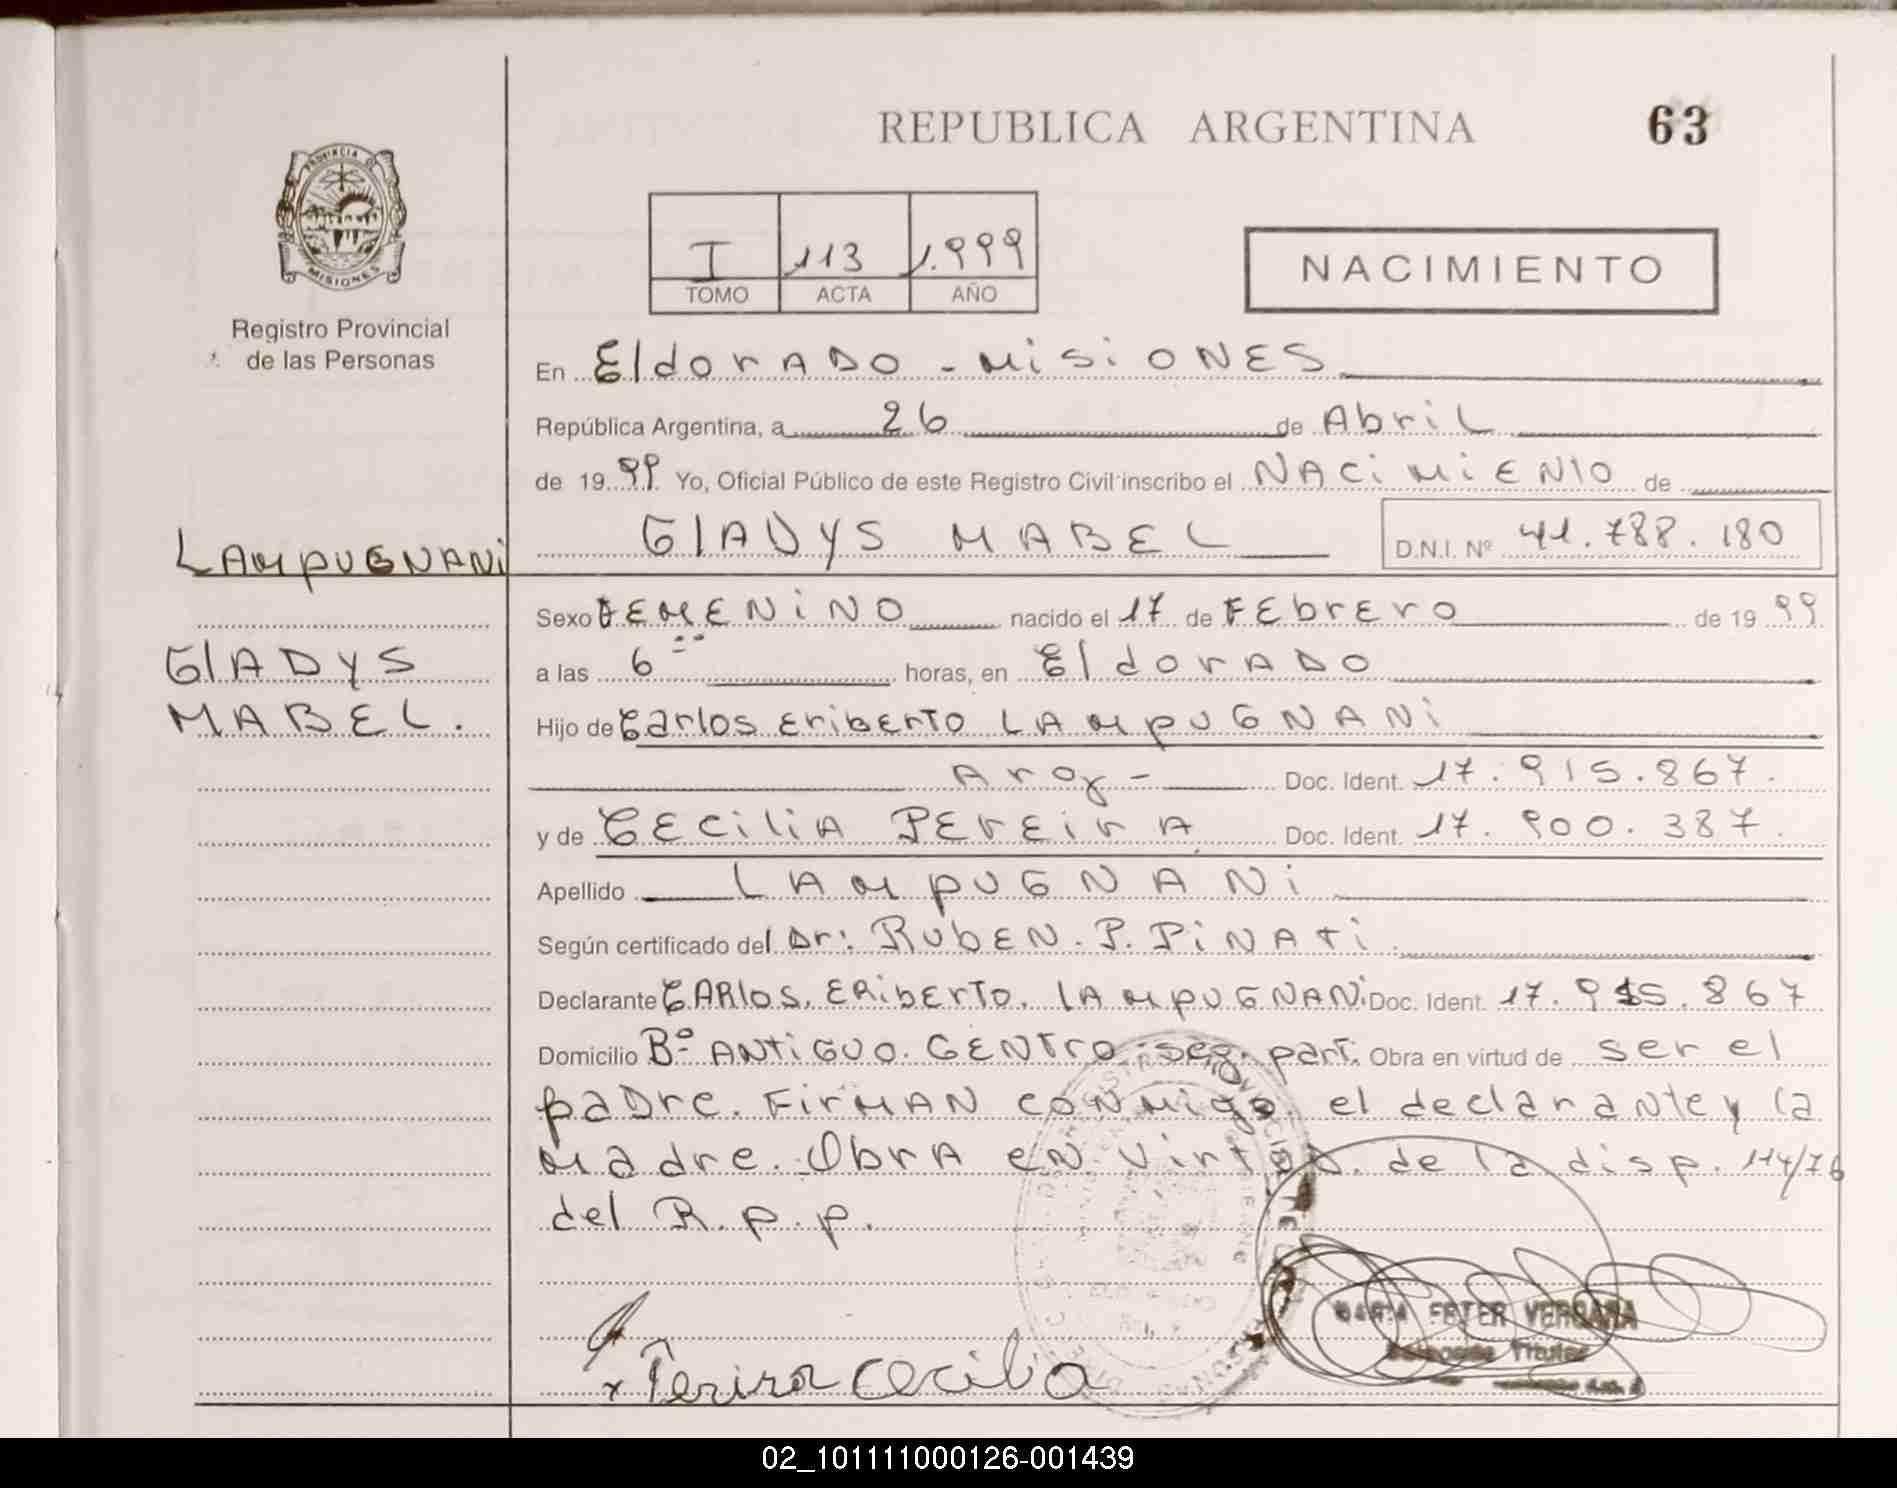 REPUBLICA ARGENTINA 63
PROVINCIA DE
MISIONES
Registro Provincial
de las Personas
I 113 1.999
TOMO ACTA AÑO
NACIMIENTO
En ElDorADO - MisiONES
República Argentina, a 26 de AbriL
de 1999 Yo, Oficial Público de este Registro Civil inscribo el NACiMiENtO de
LAMpUGNANi GlADyS MABEL D.N.I. Nº 41.788.180
Sexo FEMENiNO nacido el 17 de FEbrEro de 1999
GlADyS a las 6 horas, en ElDorADO
MABEL. Hijo de Carlos EribErTO LAMpUGNANi
Arg- Doc. Ident. 17.915.867.
y de CECiliA PErEirA Doc. Ident. 17.900.387.
Apellido LAMpUGNANi
Según certificado del Dr: RUbEN. P. PiNATi
Declarante CARlos. ERibErTo. lAMpUGNANi Doc. Ident. 17.915.867
Domicilio Bº ANTiGUO. CENTro. seg. part. Obra en virtud de ser el
paDre. FirMAN coNMigo. el declarante y la
Madre. ObrA eN Virtud. de la disp. 114/76
del R.p.p.
x Perira Cecilia
02_101111000126-001439